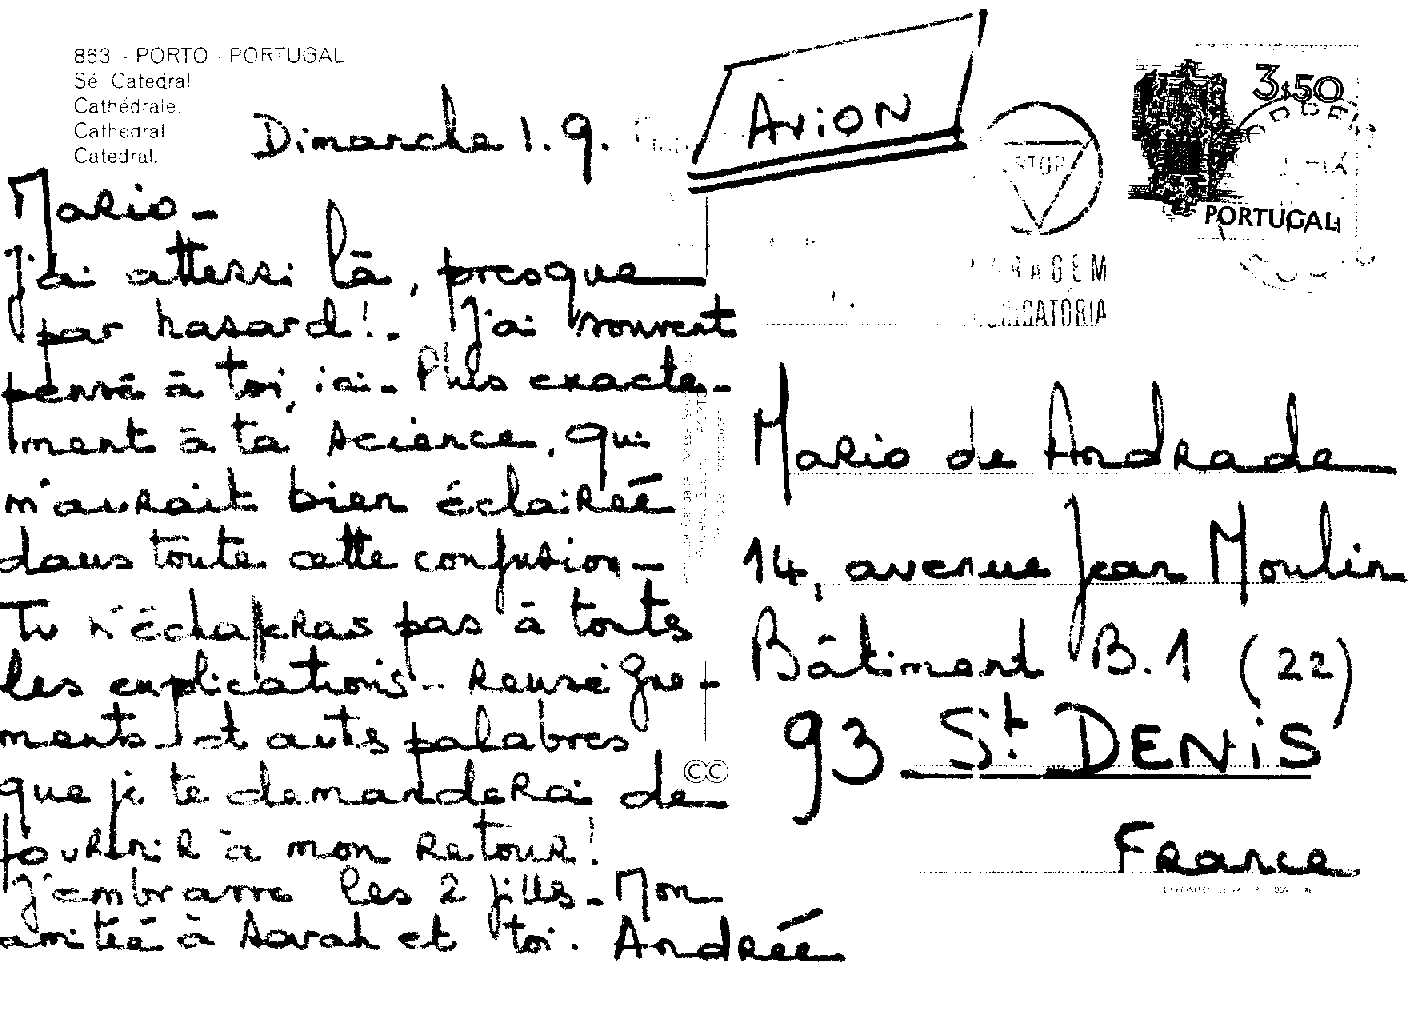 863 - PORTO - PORTUGAL
Sé Catedral
Cathédrale.
Cathedral
Catedral.
Dimarche 1.9.
AViON
3$50
PORTUGAL
STOP
PARAGEM
OBRIGATÓRIA
Mario _
J'ai atterri là, presque
par hasard!. J'ai souvent
pensé à toi, ici - Plus exacte-
ment à ta science, qui
m'aurait bien éclairée
dans toute cette confusion -
Tu n'échapras pas à touts
les explications.. Renseigne-
ments et auts palabres
que je te demanderai de
fournir à mon retour!
J'embrasse les 2 filles - Mon
amitié à Sarah et toi. Andrée
CC
Mario de Andrade
14, avenue Jean Moulin
Bâtiment B.1 (22)
93 St. DENiS
France